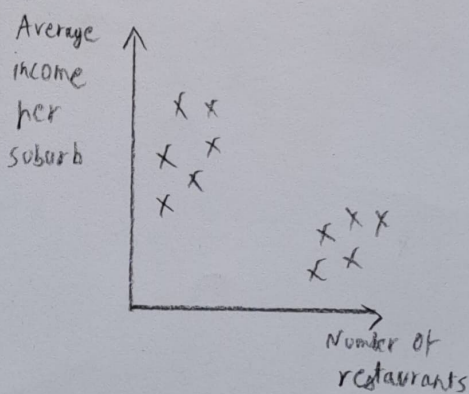 Average
income
per
suburb
Number of
restaurants